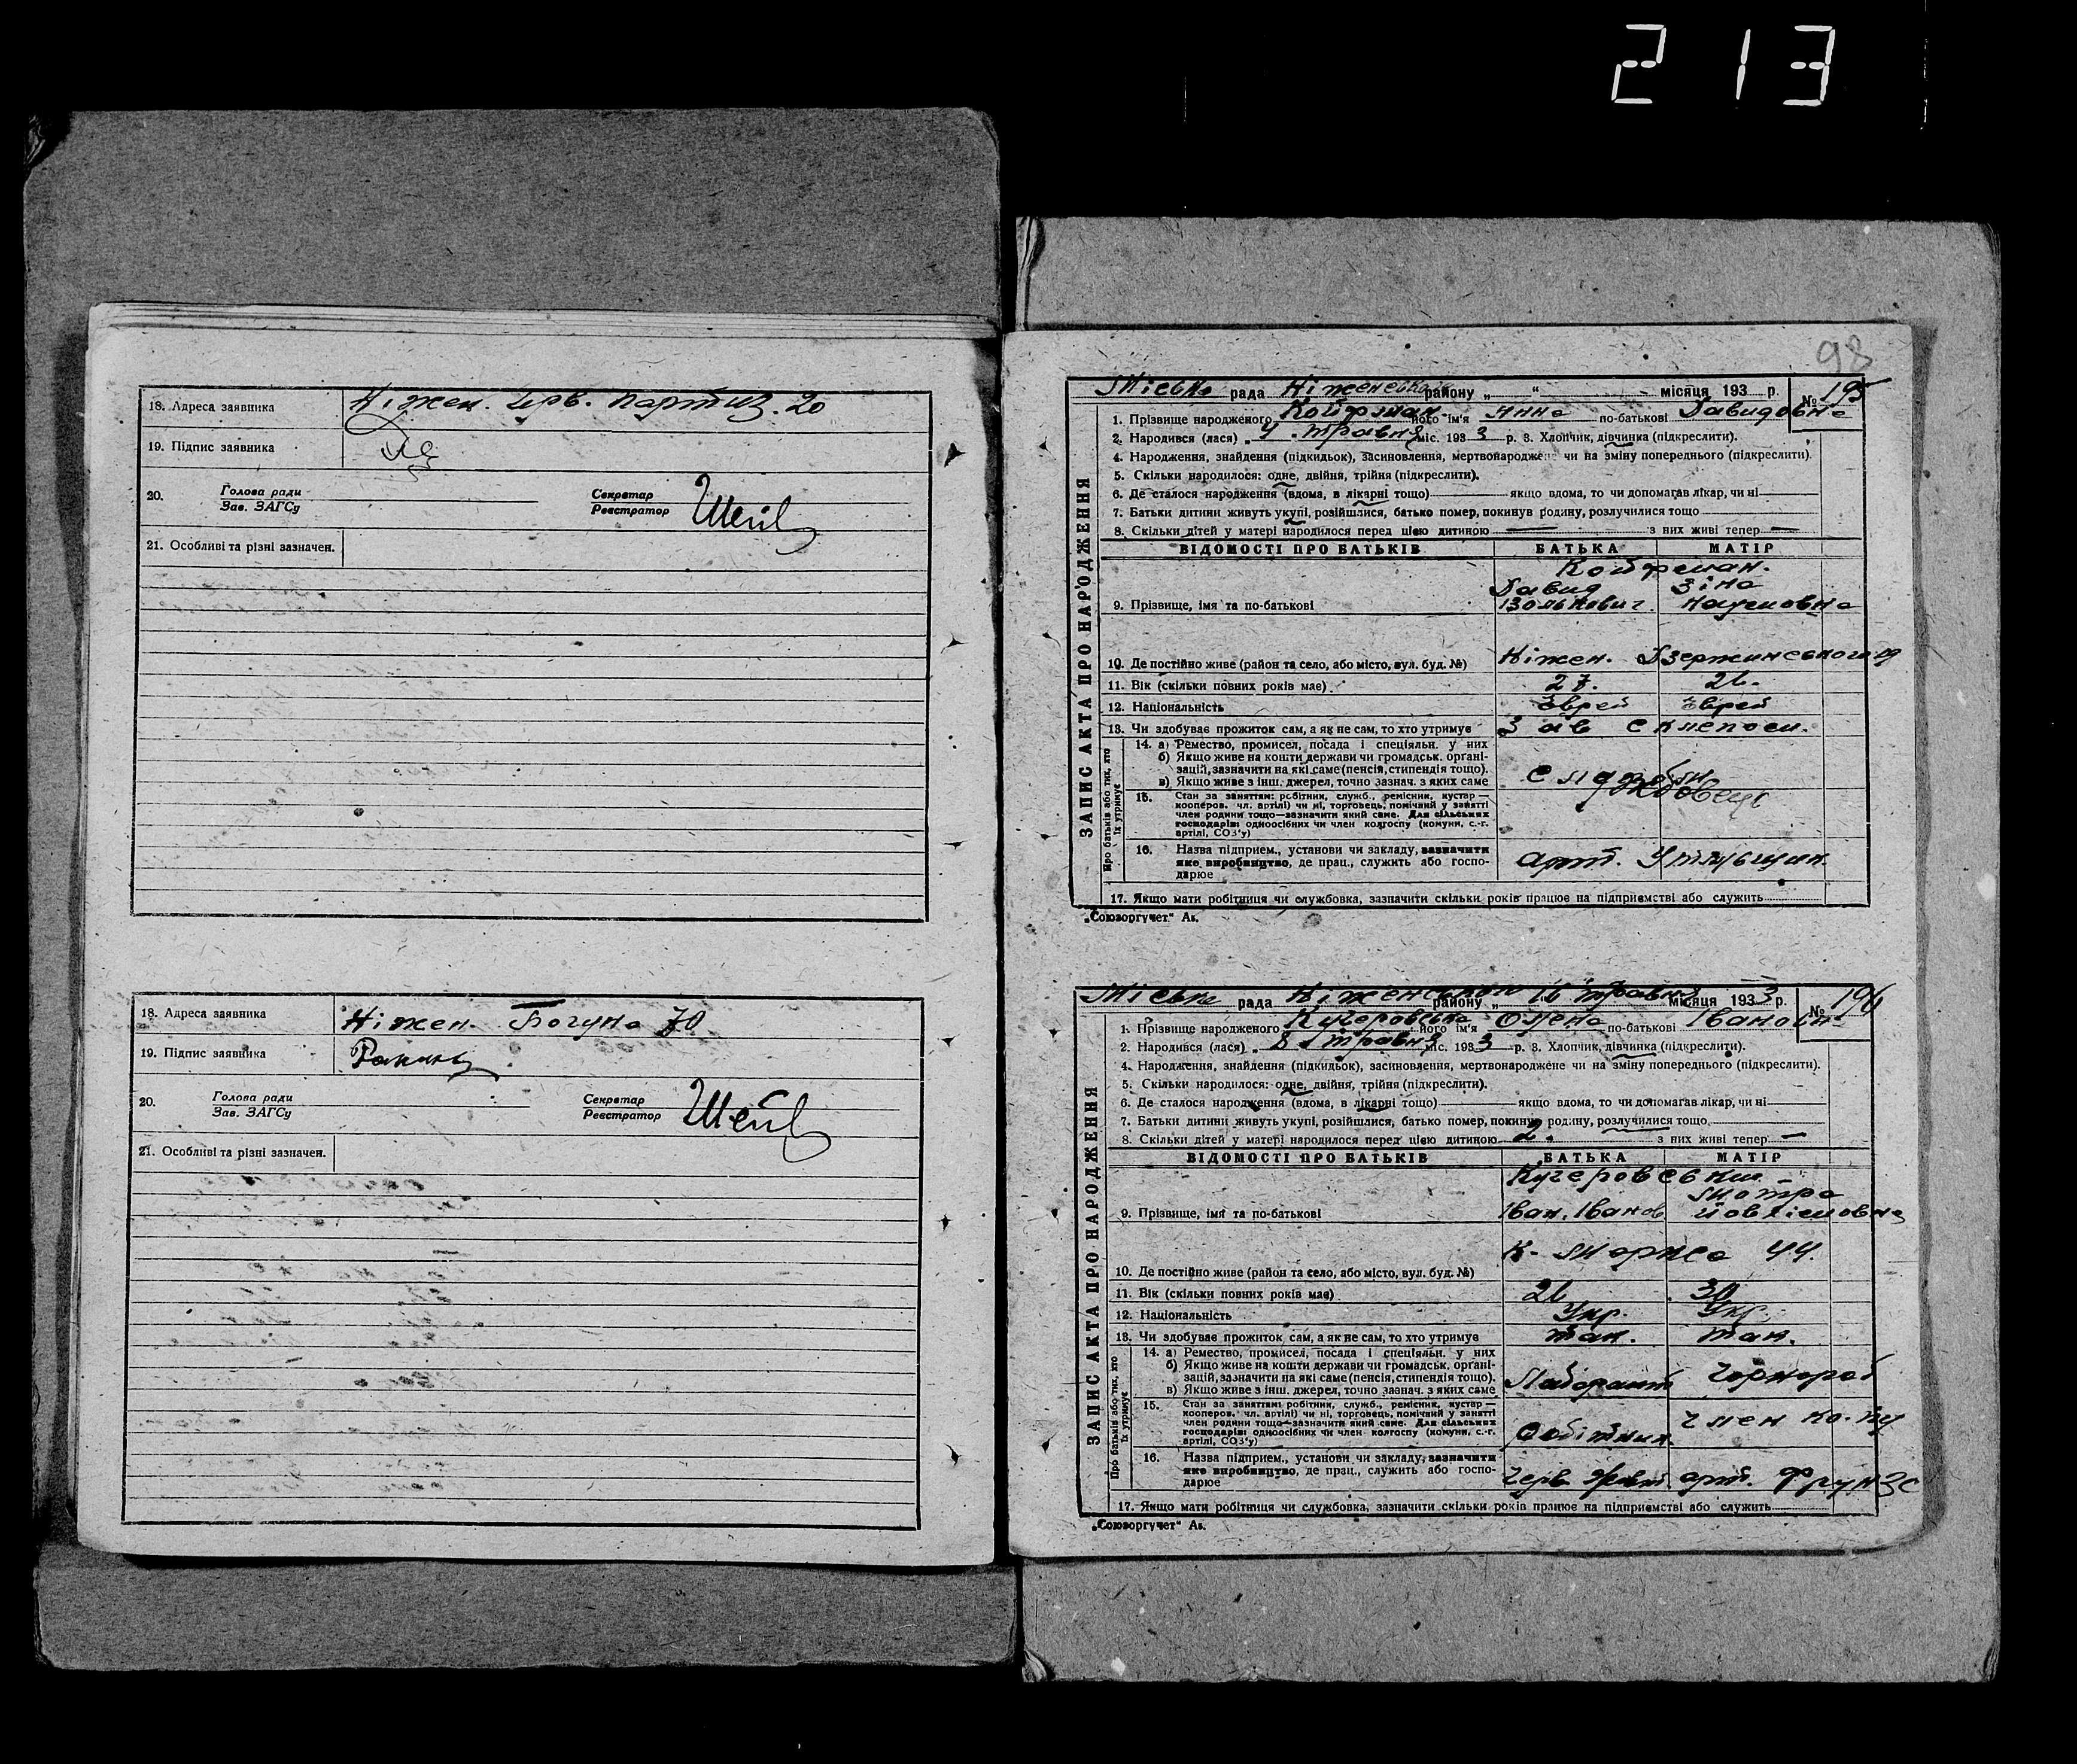 213
18. Адреса заявника Ніжен. Черв. партиз. 20
19. Підпис заявника
20. Голова ради Секретар
Зав. ЗАГСу Реєстратор
21. Особливі та різні зазначен.
18. Адреса заявника Ніжен. Богуна 70
19. Підпис заявника
20. Голова ради Секретар
Зав. ЗАГСу Реєстратор
21. Особливі та різні зазначен.
98
ЗАПИС АКТА ПРО НАРОДЖЕННЯ
Міська рада Ніженська району „ “ місяця 193 р. № 195
1. Прізвище народженого Койфман його ім'я Анна по-батькові Давидовна
2. Народився (лася) „ 4 травня міс. 193 3 р. 3. Хлопчик, дівчинка (підкреслити).
4. Народження, знайдення (підкидьок), засиновлення, мертвонароджене чи на зміну попереднього (підкреслити).
5. Скільки народилося: одне, двійня, трійня (підкреслити).
6. Де сталося народження (вдома, в лікарні тощо) якщо вдома, то чи допомагав лікар, чи ні
7. Батьки дитини живуть укупі, розійшлися, батько помер, покинув родину, розлучилися тощо
8. Скільки дітей у матері народилося перед цією дитиною — з них живі тепер —
ВІДОМОСТІ ПРО БАТЬКІВ БАТЬКА МАТІР
Койфман.
Давид Зіна
9. Прізвище, імя та по-батькові Наумовна
10. Де постійно живе (район та село, або місто, вул. буд. №) Ніжен. Дзержинського 19
11. Вік (скільки повних років має) 27. 26.
12. Національність Єврей Єврей
13. Чи здобуває прожиток сам, а як не сам, то хто утримує Зав склепом.
Про батьків або тих, хто їх утримує
14. а) Ремество, промисел, посада і спеціяльн. у них
б) Якщо живе на кошти держави чи громадськ. органі-
зацій, зазначити на які саме (пенсія, стипендія тощо).
в) Якщо живе з інш. джерел, точно зазнач. з яких саме
15. Стан за заняттям: робітник, служб., ремісник, кустар—
кооперов. чл. артілі) чи ні, торговець, помічний у занятті
член родини тощо—зазначити який саме. Для сільських
господарів: одноосібних чи член колгоспу (комуни, с.-г.
артілі, СОЗ'у)
16. Назва підприєм., установи чи закладу, зазначити
яке виробництво, де прац., служить або госпо-
дарює арт.
17. Якщо мати робітниця чи службовка, зазначити скільки років працює на підприємстві або служить
„Союзоргучет“ Ак.
ЗАПИС АКТА ПРО НАРОДЖЕННЯ
Міська рада Ніженського району „ 16 травня місяця 193 3 р. № 196
1. Прізвище народженого Кучеровська його ім'я Олена по-батькові Івановн
2. Народився (лася) „ 8 травня міс. 193 3 р. 3. Хлопчик, дівчинка (підкреслити).
4. Народження, знайдення (підкидьок), засиновлення, мертвонароджене чи на зміну попереднього (підкреслити).
5. Скільки народилося: одне, двійня, трійня (підкреслити).
6. Де сталося народження (вдома, в лікарні тощо) якщо вдома, то чи допомагав лікар, чи ні
7. Батьки дитини живуть укупі, розійшлися, батько помер, покинув родину, розлучилися тощо
8. Скільки дітей у матері народилося перед цією дитиною 2. з них живі тепер —
ВІДОМОСТІ ПРО БАТЬКІВ БАТЬКА МАТІР
Мотря
9. Прізвище, імя та по-батькові Іван. Іванов
К- Маркса 44.
10. Де постійно живе (район та село, або місто, вул. буд. №)
11. Вік (скільки повних років має) 26 30
12. Національність Укр. Укр.
13. Чи здобуває прожиток сам, а як не сам, то хто утримує так. так.
Про батьків або тих, хто їх утримує
14. а) Ремество, промисел, посада і спеціяльн. у них
б) Якщо живе на кошти держави чи громадськ. органі-
зацій, зазначити на які саме (пенсія, стипендія тощо).
в) Якщо живе з інш. джерел, точно зазнач. з яких саме Лаборант Чорнороб
15. Стан за заняттям: робітник, служб., ремісник, кустар—
кооперов. чл. артілі) чи ні, торговець, помічний у занятті
член родини тощо—зазначити який саме. Для сільських
господарів: одноосібних чи член колгоспу (комуни, с.-г.
артілі, СОЗ'у) Робітник. член
16. Назва підприєм., установи чи закладу, зазначити
яке виробництво, де прац., служить або госпо-
дарює Черв. арт. Фрунзе
17. Якщо мати робітниця чи службовка, зазначити скільки років працює на підприємстві або служить
„Союзоргучет“ Ак.